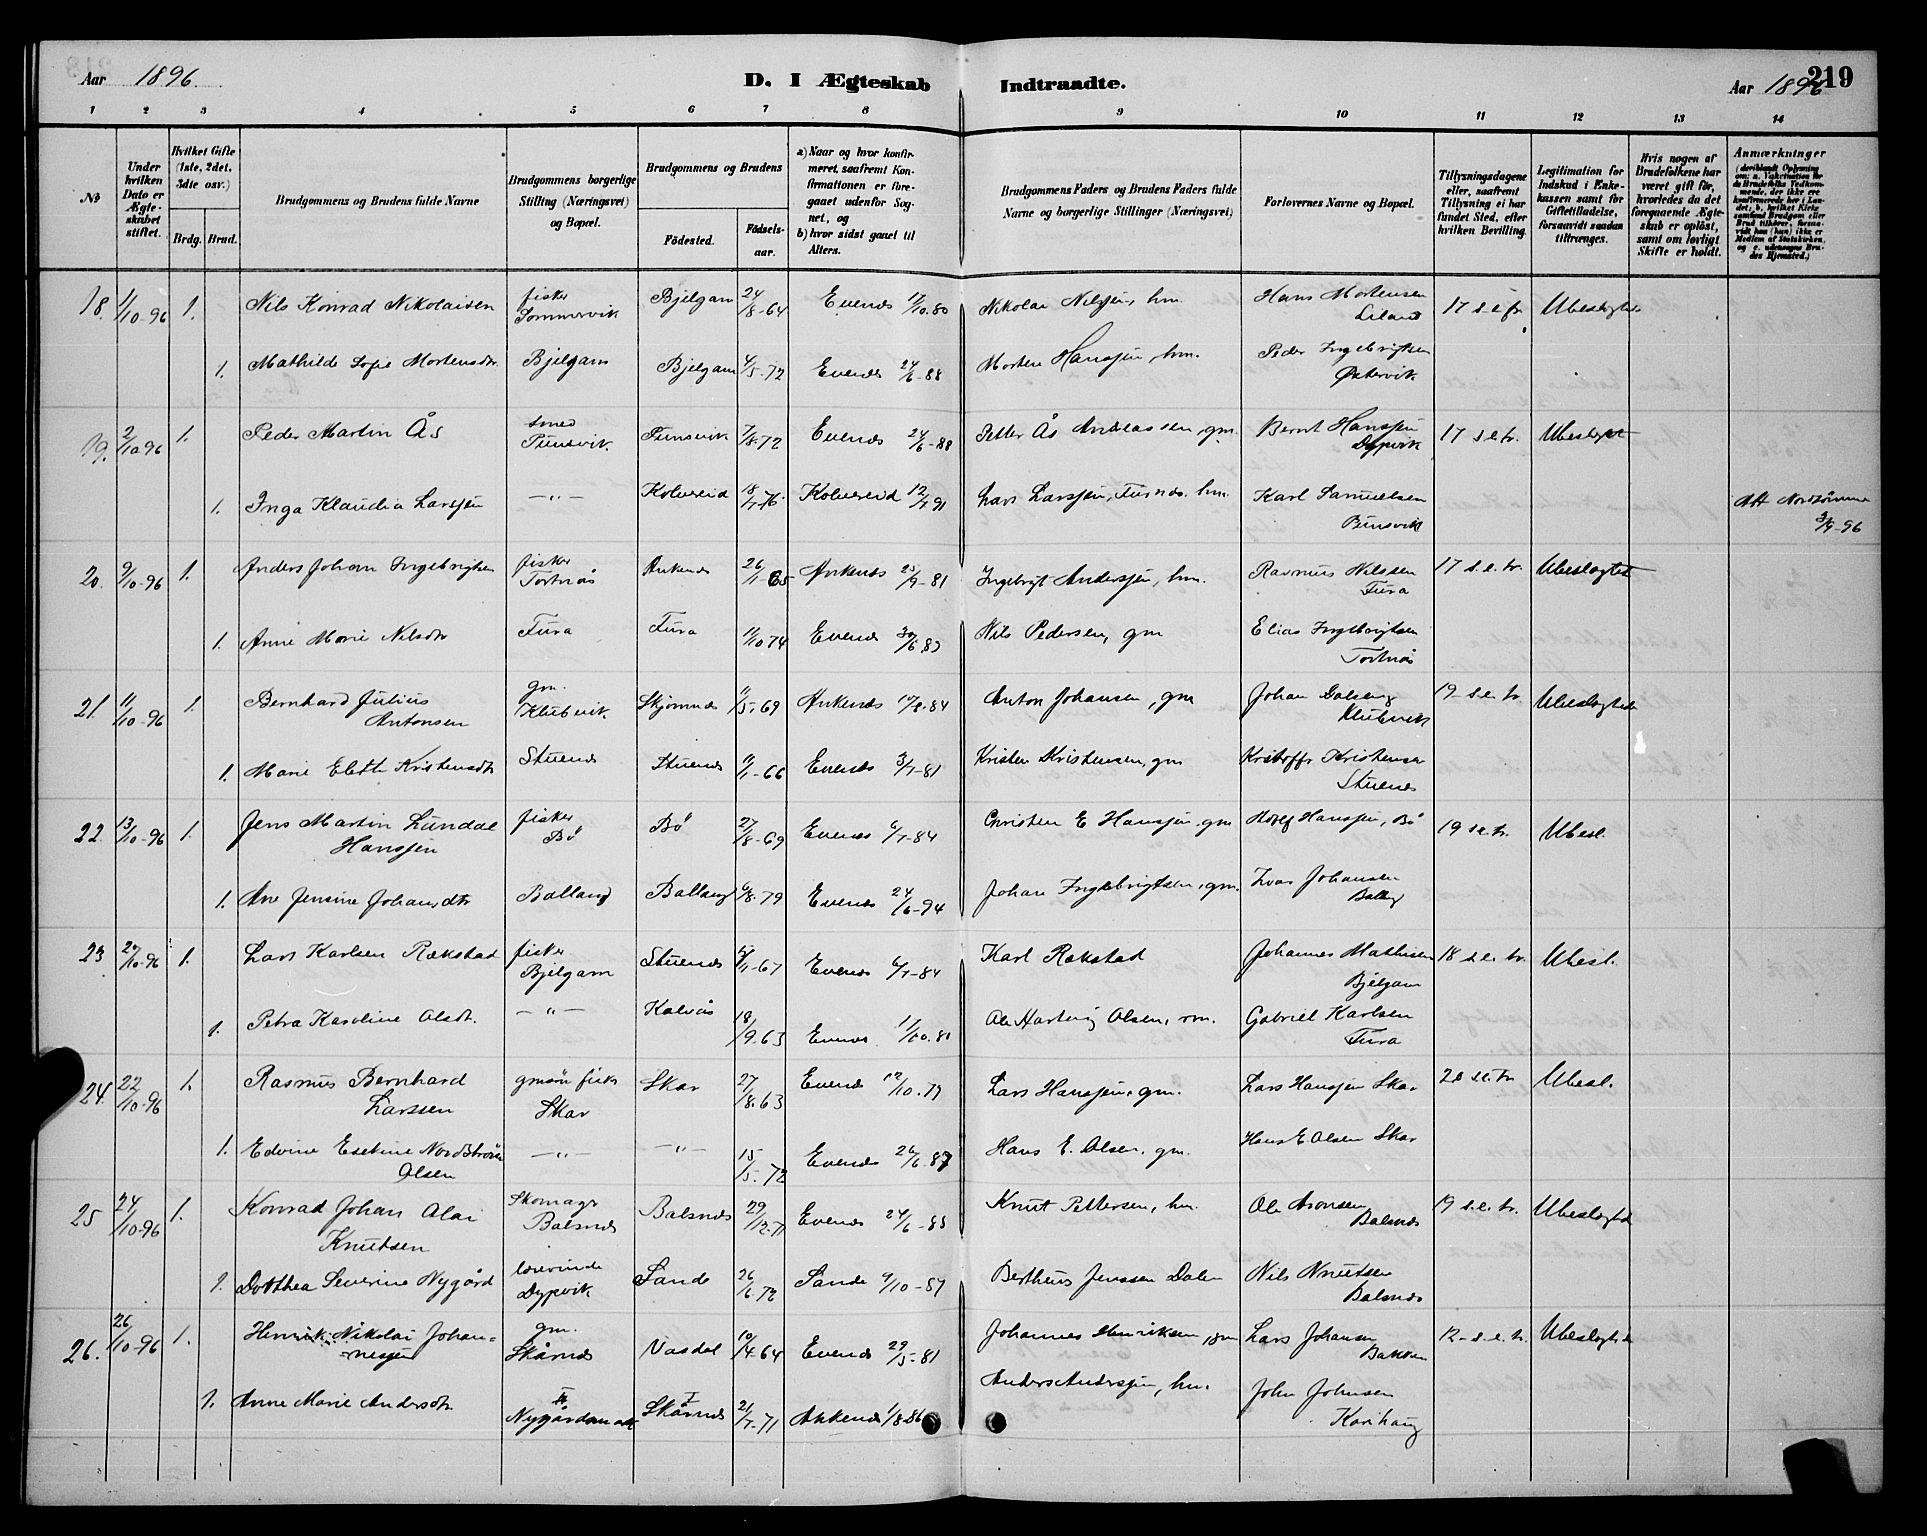 Aar 1896 D. I Ægteskab Indtraadte. Aar 1896 219
1 2 3 4 5 6 7 8 9 10 11 12 13 14
№
Under hvilken Dato er Ægteskabet stiftet.
Hvilket Gifte (1ste, 2det, 3die osv.)
Brdg. Brud.
Brudgommens og Brudens fulde Navne
Brudgommens borgerlige Stilling (Næringsvei) og Bopæl.
Brudgommens og Brudens
Fødested. Fødselsaar.
a) Naar og hvor konfirmeret, saafremt Konfirmationen er foregaaet udenfor Sognet, og
b) hvor sidst gaaet til Alters.
Brudgommens Faders og Brudens Faders fulde Navne og borgerlige Stillinger (Næringsvei)
Forlovernes Navne og Bopæl.
Tillysningsdagene eller, saafremt Tillysning ei har fundet Sted, efter hvilken Bevilling.
Legitimation for Indskud i Enkekassen samt for Giftetilladelse, forsaavidt saadan tiltrænges.
Hvis nogen af Brudefolkene har været gift før, hvorledes da det foregaaende Ægteskab er opløst, samt om lovligt Skifte er holdt.
Anmærkninger
18. 1/10-96 1. Nils Konrad Nikolaisen fisker Sommervik Bjelgam 24/8-64 Evenes 17/10.80 Nikolai Nilssen, hm. Hans Mortensen Liland 17 s.e.tr. Ubeslægtede
1. Mathilde Sofie Mortensdtr. Bjelgam Bjelgam 4/5-72 Evenes 24/6-88 Morten Hanssen, hm. Peder Ingebrigtsen Østervik
19. 2/10-96 1. Peder Martin Ås smed Punsvik Punsvik 7/8-72 Evenes 24/6-88 Petter Ås Andreassen, gm. Bernt Hanssen Dypvik 17 s.e.tr. Ubeslægt
1. Inga Klaudia Larssen —„— Kolvereid 18/7-76. Kolvereid 12/7-91 Lars Larssen, hm. Karl Samuelsen Punsvik
20. 9/10-96 1. Anders Johan Ingebrigtsen fisker Tortnås Ankenes 26/1-65 Ankenes 25/9-81 Ingebrigt Anderssen, hm. Rasmus Nilssen Fura 17 s.e.tr. Ubeslægtet
1. Anne Marie Nilsdtr Fura Fura 11/10 74 Evenes 30/6-89 Nils Pedersen, gm Elias Ingebrigtsen Tortnås
21. 11/10-96 1. Bernhard Julius Antonsen gm. Klubvik Skjomnes 11/5-69 Ankenes 17/8-84 Anton Johansen, gm Johan Klubvik 19 s.e.tr. Ubeslægtede
1. Marie Eleth Kristensdtr Stuenes Stuenes 11/1-66 Evenes 3/7-81 Kristen Kristensen, gm Kristoffer Kristensen Stuenes
22. 13/10-96 1. Jens Martin Lundal Hanssen fisker Bø Bø 27/8-69 Evenes 6/7-84 Christen E Hanssen, gm Hanssen, Bø 19 s.e.tr. Ubesl.
1. Ane Jensine Johansdtr Balland Balland 6/8-79 Evenes 24/6-94 Johan Ingebrigtsen, gm. Ivar Johansen
23 20/10-96 1. Lars Karlsen Rakstad fisker Bjelgam Stuenes /11-67 Evenes 6/7-84 Karl Rakstad Johannes Mathisen Bjelgam 18 s.e.tr. Ubesl.
1. Petra Karoline Olsdt. —„— Kalvås 18/9-63 Evenes 17/10.80 Ole Hartvig Olsen, rm. Gabriel Karlsen Fura
24. 22/10-96 1. Rasmus Bernhard Larssen gmsøn fisker Skar Skar 27/8.63 Evenes 12/10-79 Lars Hanssen, gm. Lars Hanssen Skar 20 s.e.tr. Ubesl.
1. Edvine Esekine Nordstrøm Olsen —„— —„— 15/5-72 Evenes 26/6-87 Hans E. Olsen, gm. Hans E Olsen Skar
25 24/10-96 1. Konrad Johan Olai Knutsen Skomager Balsnes Balsnes 29/12-71 Evenes 24/6-88 Knut Pettersen, hm. Ole Aronsen Balsnes 19 s.e.tr. Ubeslægted
1. Dorthea Severine Nygård lærerinde Dypvik Sande 26/6-72 Sande 9/10-87 Bertheus Jenssen Dalen Nils Knutsen Balsnes
26. 26/10-96 1. Henrik Nikolai Johan=nessen gm. Skånes Vasdal 10/4-64 Evenes 29/5-81 Johannes Henriksen, gm Lars Johansen Bakken 12 s.e.tr. Ubeslægtede
1. Anne Marie Andersdtr Nygårdsmark Skånes 21/7-71 Ankenes 1/8-86 Anders Anderssen, hm. John Johnsen Karihaug